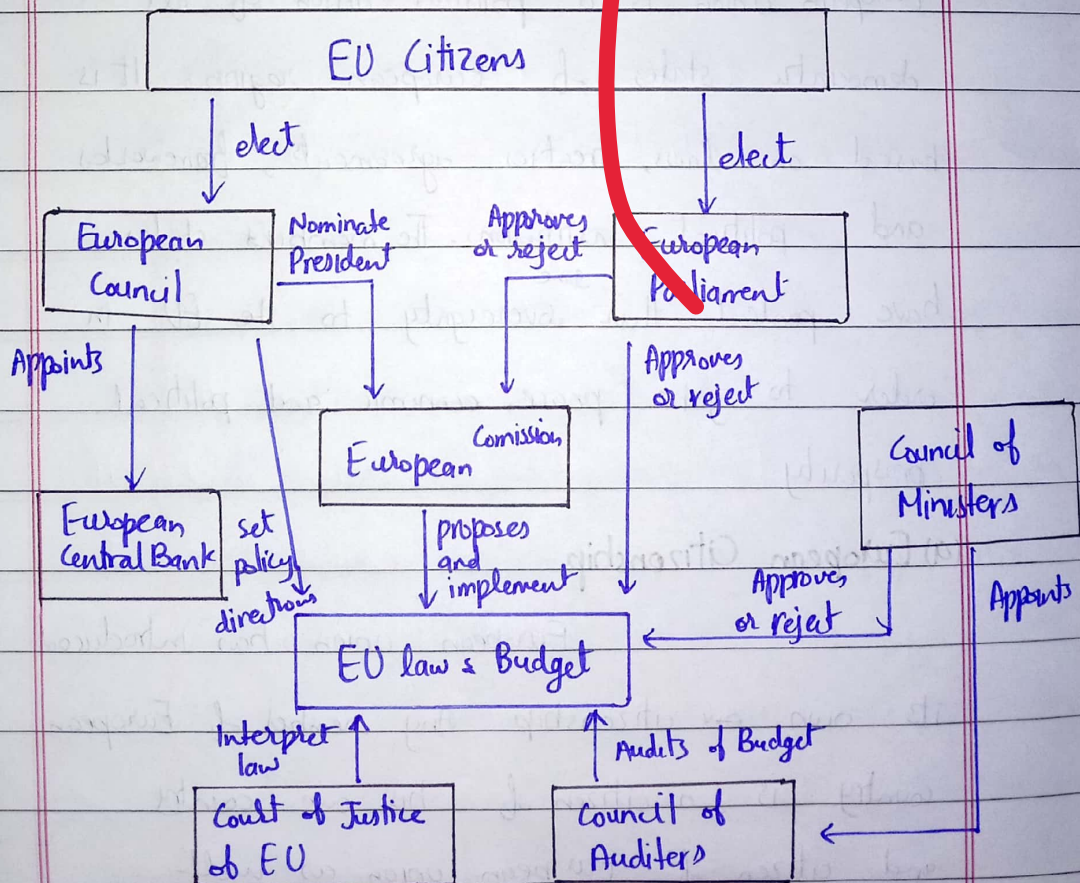 EU Citizens
elect
elect
European
Council
Nominate
President
Approves
or reject
European
Parliament
Appoints
Approves
or reject
Comission
European
Council of
Ministers
European
Central Bank
set
policy
directions
proposes
and
implement
Approves
or reject
Appoints
EU law & Budget
Interpret
law
Audits of Budget
Court of Justice
of EU
Council of
Auditers